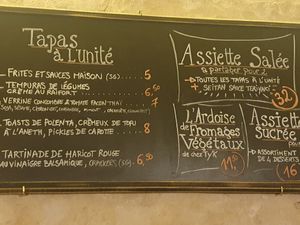 Tapas
à l'unité
- Frites et sauces maison (SG) . 5
- Tempuras de légumes
crème au raifort . . . 6,50
- Verrine concombre & tomate façon Thaï
7
- Toasts de polenta, crémeux de tofu
à l'aneth, pickles de carotte . 8
- Tartinade de haricot rouge
au vinaigre balsamique, crackers (SG) . 6,50
Assiette Salée
à partager pour 2
→ Toutes les tapas à l'unité
+ Seitan sauce teriyaki
32
L'Ardoise
de Fromages
Végétaux
de chez Tyk
11,50
Assiette
Sucrée
→ Assortiment
de 4 desserts
16